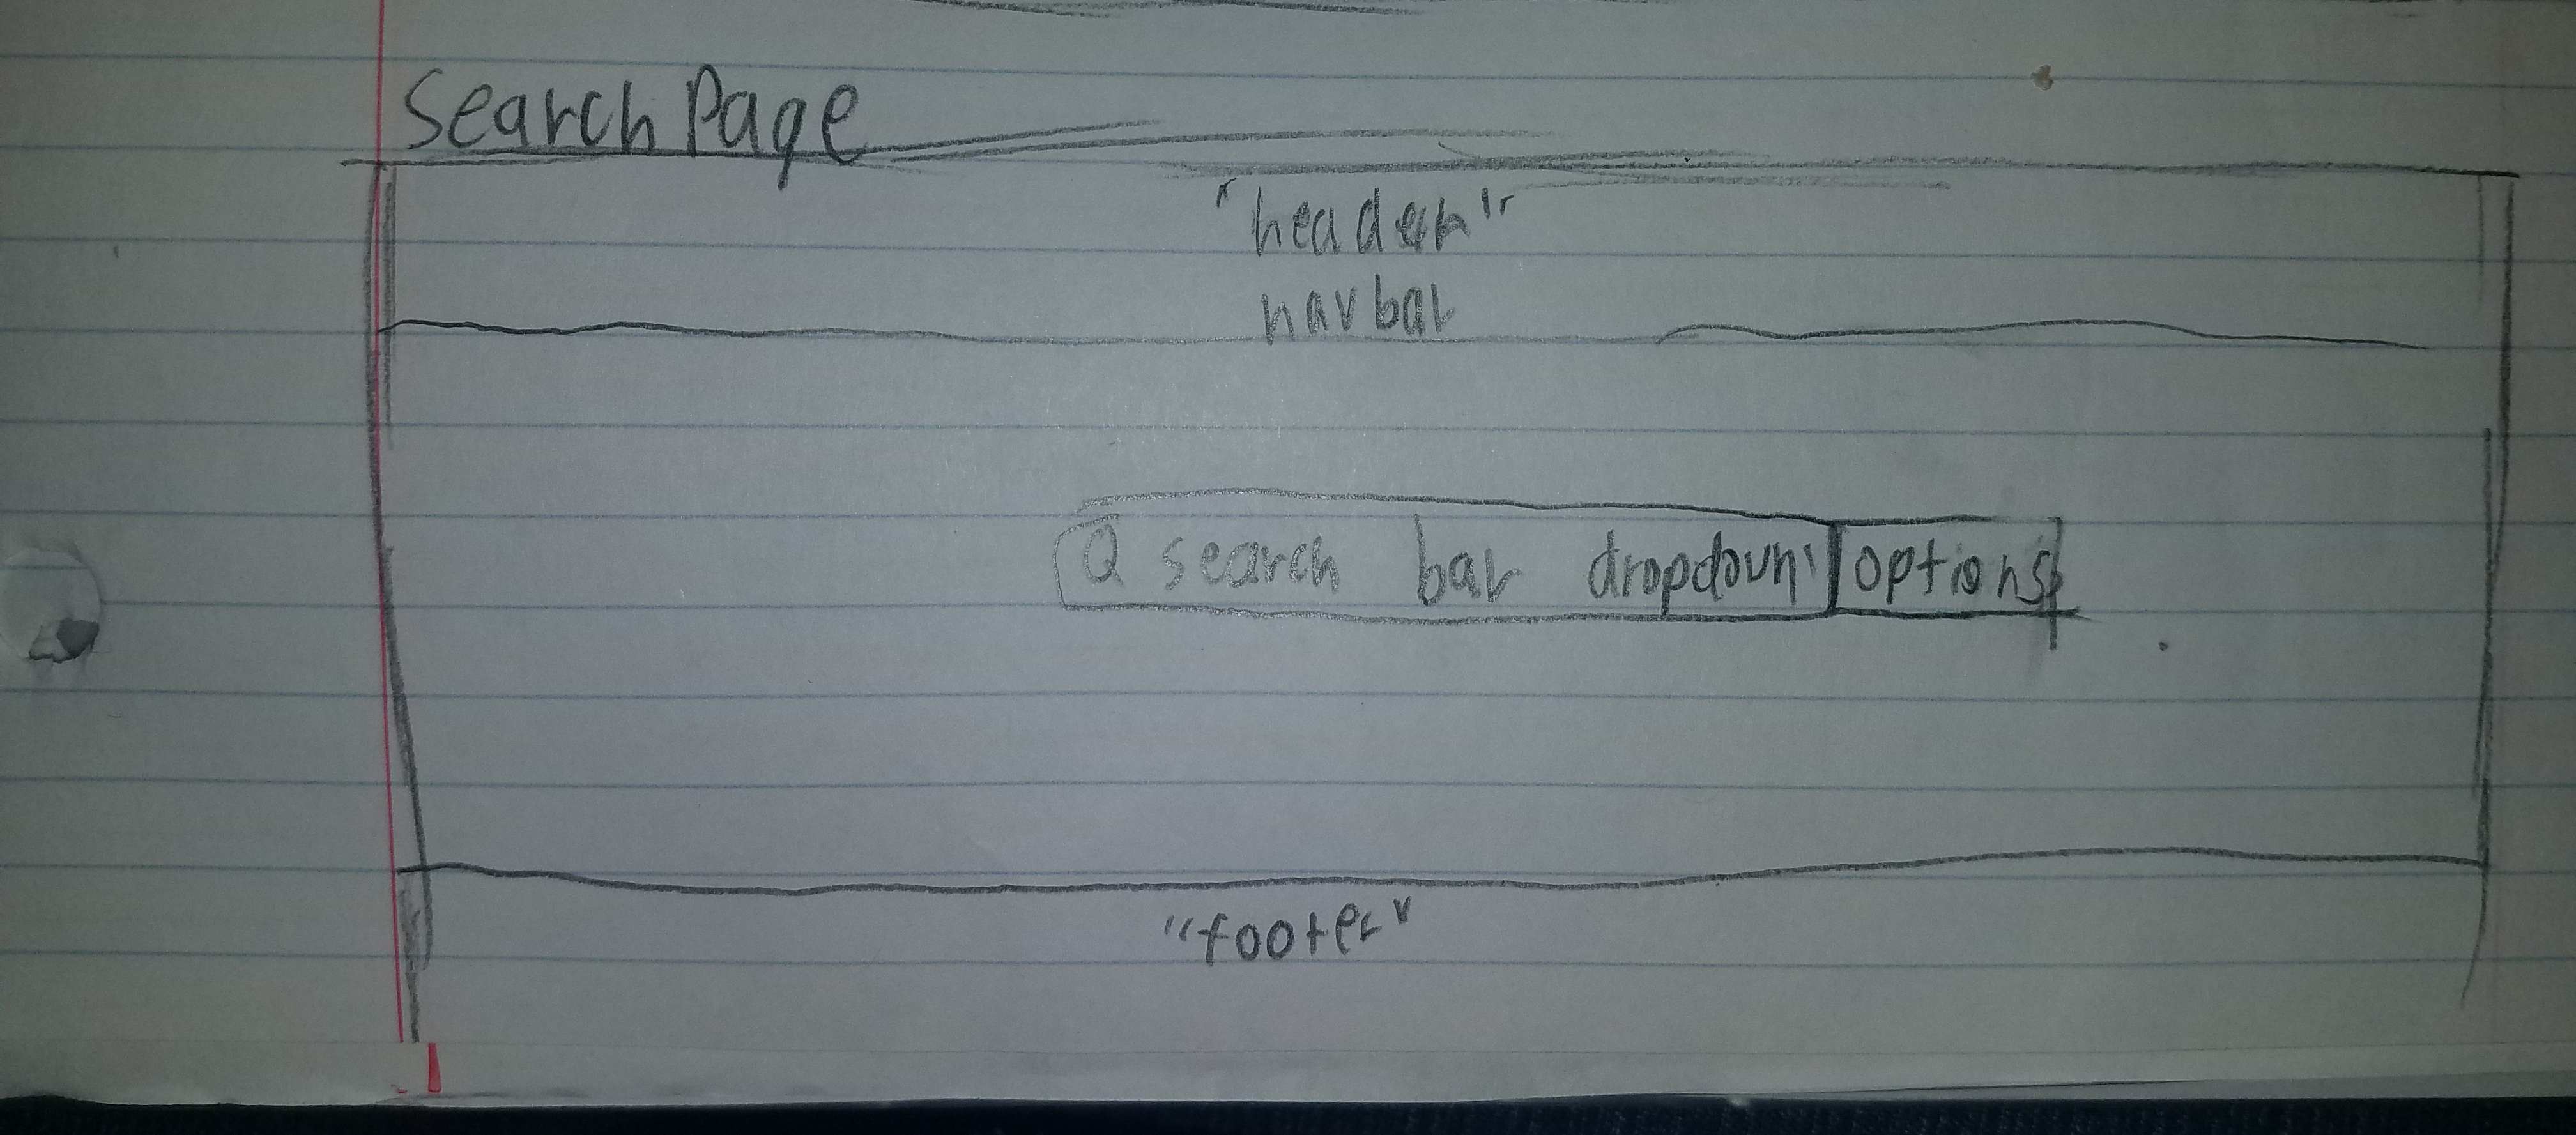 Search Page
"header"
navbar
search bar dropdown options
"footer"